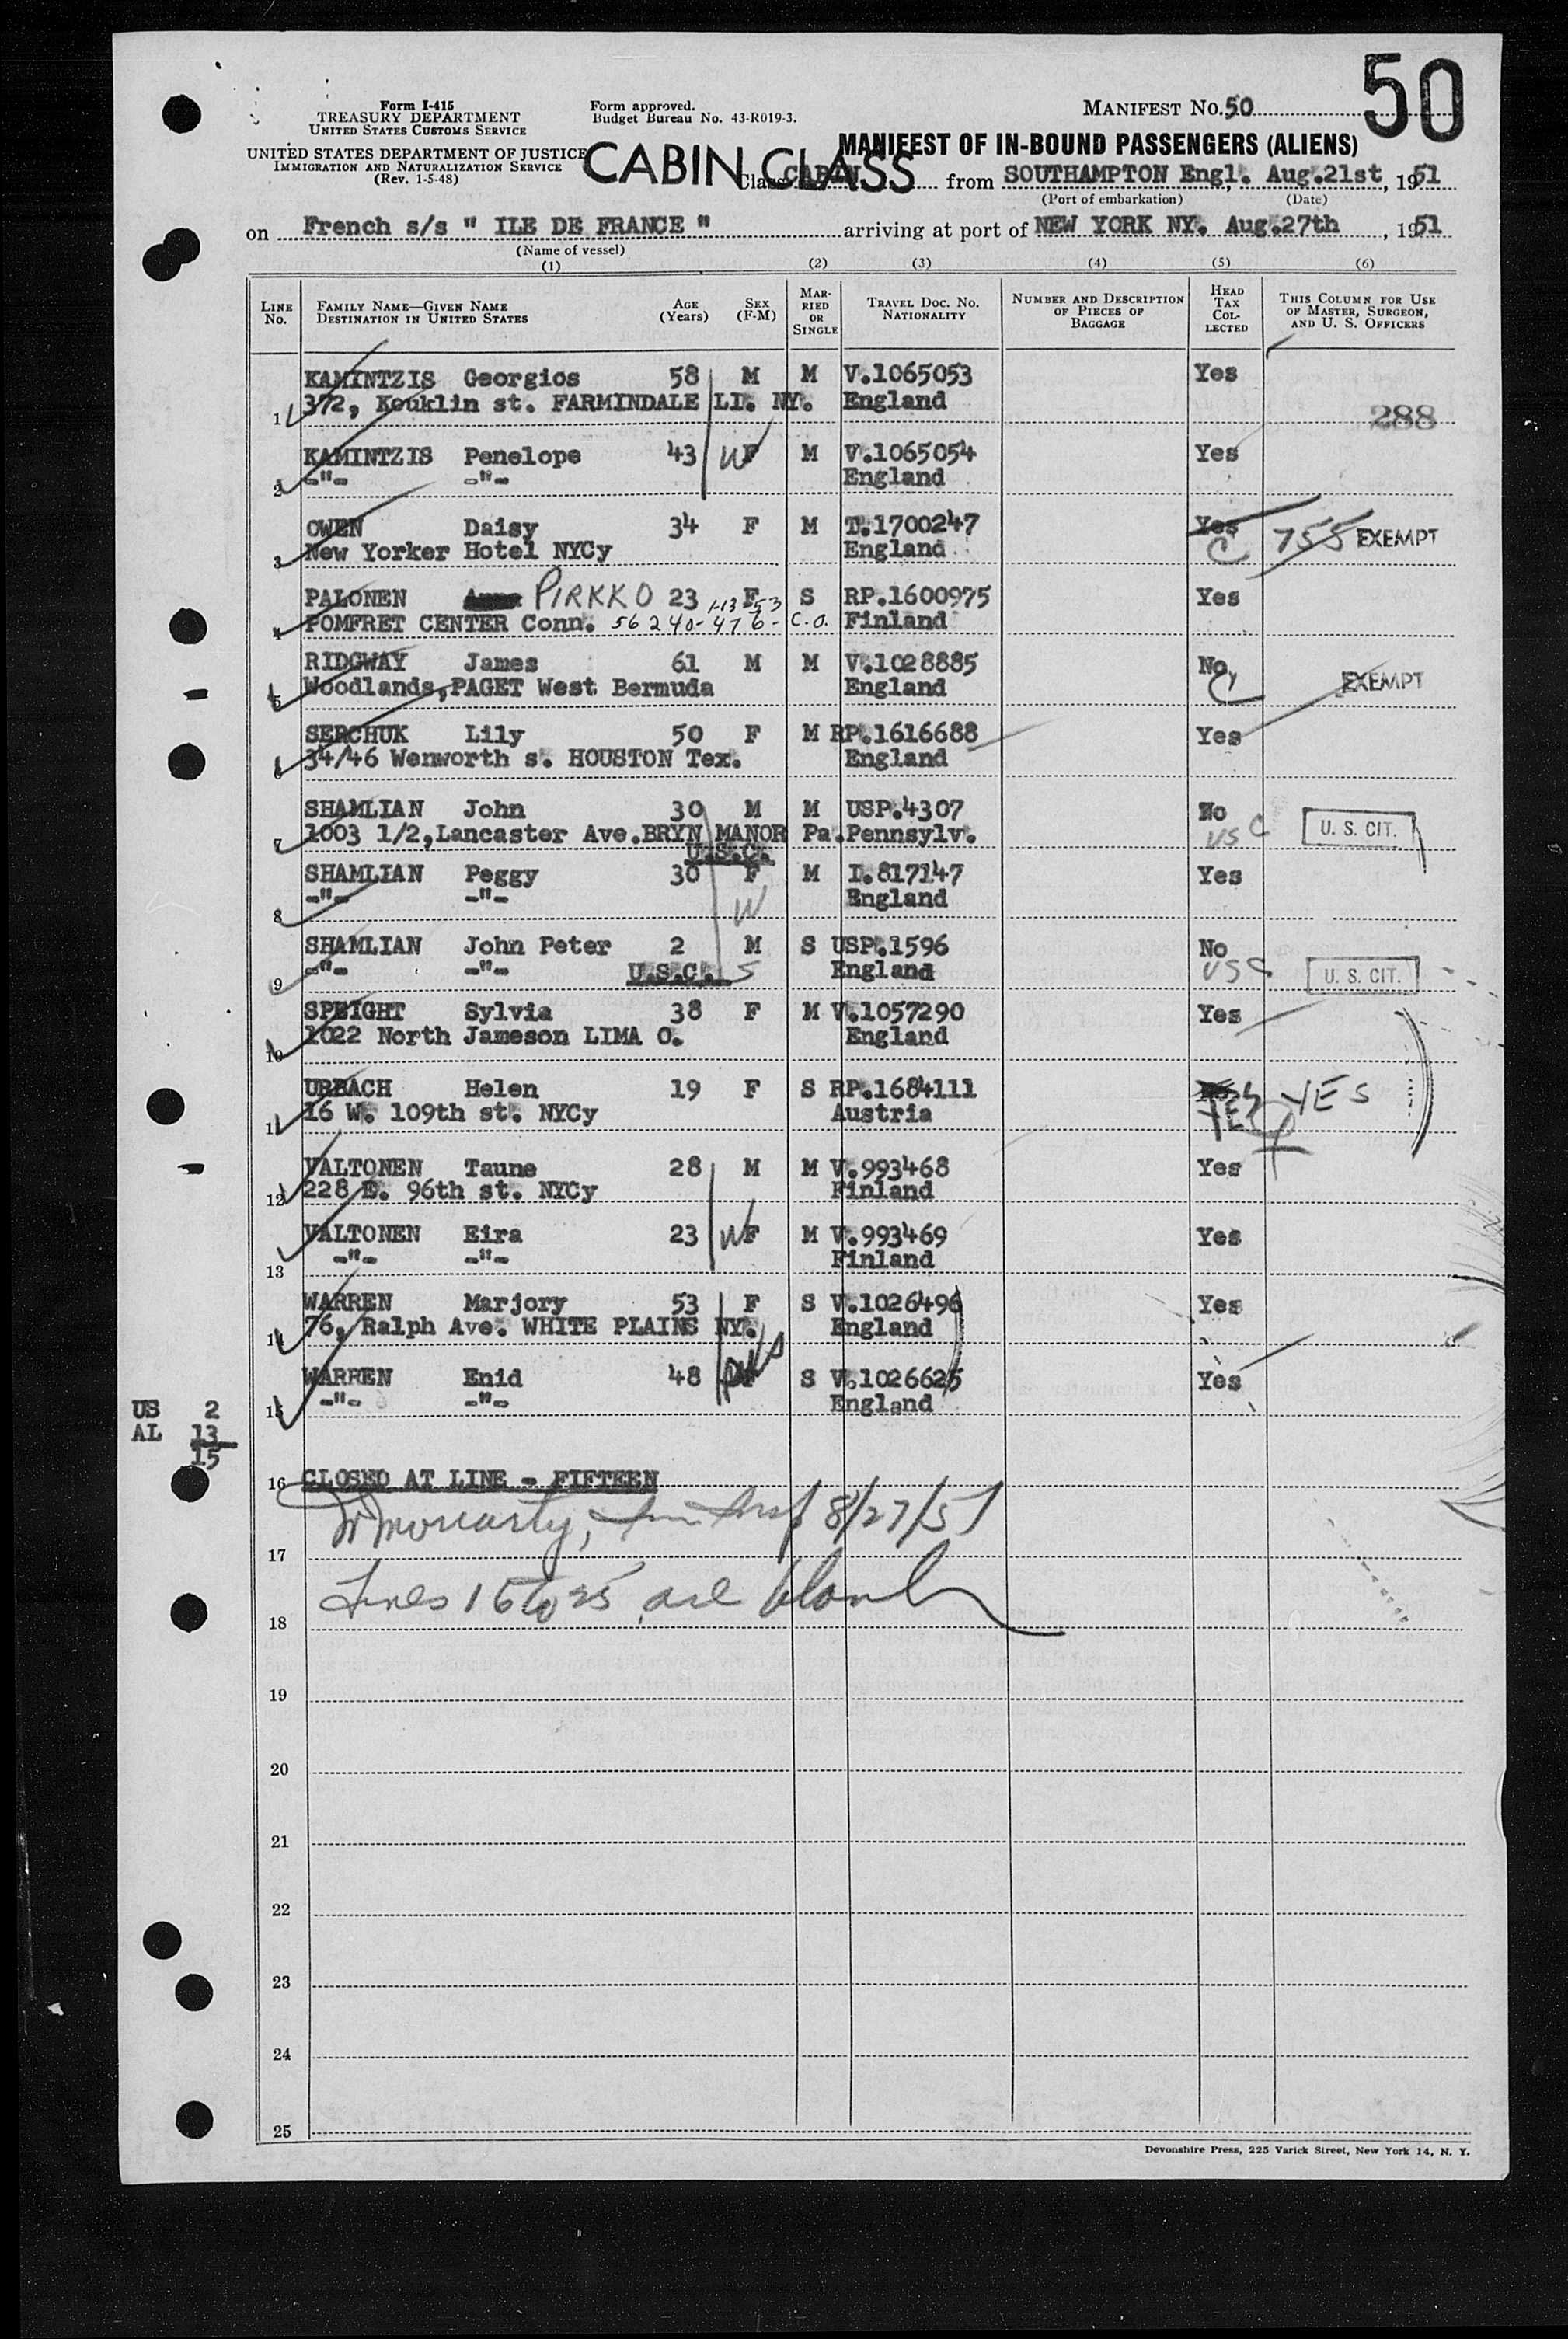 50
Form I-415
TREASURY DEPARTMENT
UNITED STATES CUSTOMS SERVICE
UNITED STATES DEPARTMENT OF JUSTICE
IMMIGRATION AND NATURALIZATION SERVICE
(Rev. 1-5-48)
Form approved.
Budget Bureau No. 43-R019-3.
MANIFEST No. 50
MANIFEST OF IN-BOUND PASSENGERS (ALIENS)
CABIN CLASS
Class CABIN from SOUTHAMPTON Engl. Aug.21st, 1951
(Port of embarkation) (Date)
on French s/s " ILE DE FRANCE " arriving at port of NEW YORK NY. Aug.27th, 1951
(Name of vessel)
(1) (2) (3) (4) (5) (6)
LINE No. FAMILY NAME—GIVEN NAME DESTINATION IN UNITED STATES AGE (Years) SEX (F-M) MARRIED OR SINGLE TRAVEL DOC. NO. NATIONALITY NUMBER AND DESCRIPTION OF PIECES OF BAGGAGE HEAD TAX COLLECTED THIS COLUMN FOR USE OF MASTER, SURGEON, AND U. S. OFFICERS
KAMINTZIS Georgios 58 M M V.1065053 Yes
1 372, Kouklin st. FARMINDALE LI. NY. England 288
KAMINTZIS Penelope 43 W F M V.1065054 Yes
2 -"- -"- England
OWEN Daisy 34 F M T.1700247 Yes C 755 EXEMPT
3 New Yorker Hotel NYCy England
PALONEN PIRKKO 23 F S RP.1600975 Yes
1-13-53
4 POMFRET CENTER Conn. 56240-476- C.O. Finland
RIDGWAY James 61 M M V.1028885 No EXEMPT
5 Woodlands,PAGET West Bermuda England
SERCHUK Lily 50 F M RP.1616688 Yes
6 34/46 Wenworth s. HOUSTON Tex. England
SHAMLIAN John 30 M M USP.4307 No USC U. S. CIT.
7 1003 1/2,Lancaster Ave.BRYN MANOR Pa.Pennsylv.
U.S.C.
SHAMLIAN Peggy 30 F M I.817147 Yes
8 -"- -"- W England
SHAMLIAN John Peter 2 M S USP.1596 No
9 -"- -"- U.S.C. S England USC U. S. CIT.
SPEIGHT Sylvia 38 F M V.1057290 Yes
10 1022 North Jameson LIMA O. England
URBACH Helen 19 F S RP.1684111 YES YES
11 16 W. 109th st. NYCy Austria
VALTONEN Taune 28 M M V.993468 Yes
12 228 E. 96th st. NYCy Finland
VALTONEN Eira 23 W F M V.993469 Yes
13 -"- -"- Finland
WARREN Marjory 53 F S V.1026496 Yes
14 76, Ralph Ave. WHITE PLAINS NY. England
WARREN Enid 48 S V.1026625 Yes
15 -"- -"- England
US 2
AL 13
15
16 CLOSED AT LINE - FIFTEEN
Moriarty, 8/27/51
17
Lines 16 to 25 are blank
18
19
20
21
22
23
24
25
Devonshire Press, 225 Varick Street, New York 14, N. Y.